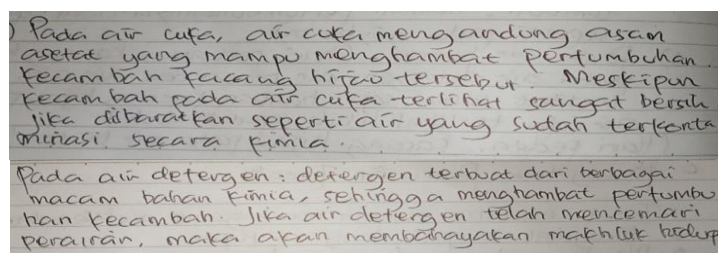 ) Pada air cuka, air cuka mengandung asam
asetat yang mampu menghambat pertumbuhan
kecambah kacang hijau tersebut. Meskipun
kecambah pada air cuka terlihat sangat bersih
jika diibaratkan seperti air yang sudah terkonta
minasi secara kimia.
Pada air detergen : detergen terbuat dari berbagai
macam bahan kimia, sehingga menghambat pertumbu
han kecambah. Jika air detergen telah mencemari
perairan, maka akan membahayakan makhluk hidup